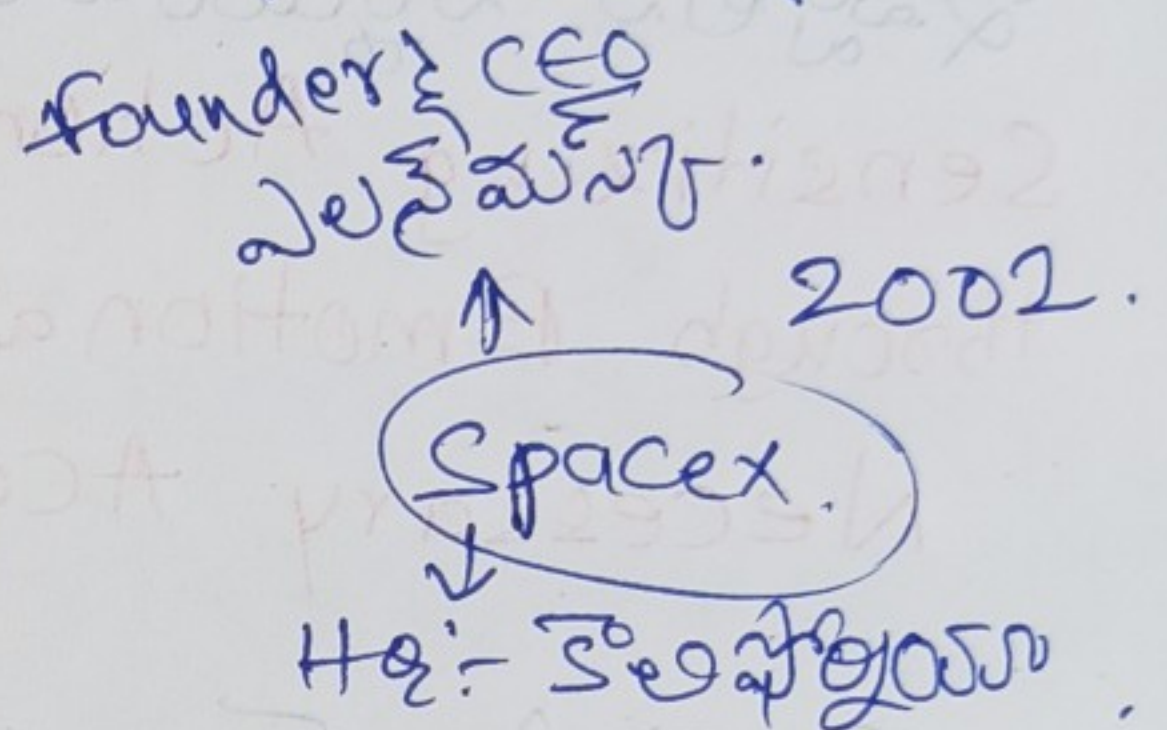 Founder & CEO
ఎలన్ మస్క్.
2002.
Spacex.
HQ:- కాలిఫోర్నియా.